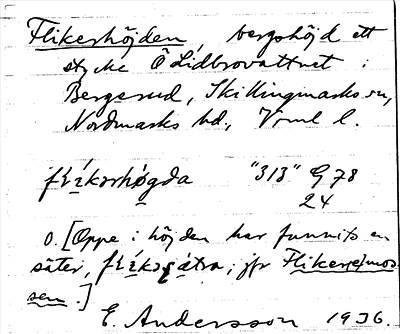 Flikershöjden, bergshöjd ett
stycke Ö Lidbrovattnet i
Bergerud, Skillingmarks sn,
Nordmarks hd., Vrml l.
flíkərshögda "313" G 78
24
o. [Oppe i höjden har funnits en
säter, ; jfr Flikersejmos-
sen.]
E. Andersson 1936.